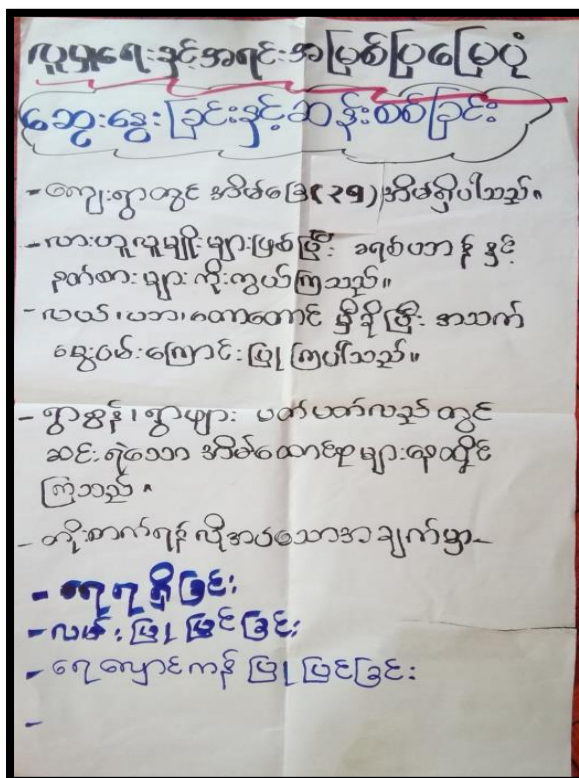 လူမှုရေးနှင့်အရင်းအမြစ်ပြမြေပုံ
ဆွေးနွေးခြင်းနှင့်ဆန်းစစ်ခြင်း
- ကျေးရွာတွင် အိမ်ခြေ(၃၅)အိမ်ရှိပါသည်။
- လားဟူလူမျိုးများဖြစ်ပြီး ခရစ်ယာန် နှင့်
နတ်စားများ ကိုးကွယ်ကြသည်။
- လယ်၊ယာ၊တောတောင် မှီခိုပြီး အသက်
မွေးဝမ်းကြောင်းပြု ကြပါသည်။
- ရွာစွန်၊ ရွာဖျား ပတ်ပတ်လည်တွင်
ဆင်းရဲသော အိမ်ထောင်စုများနေထိုင်
ကြသည်။
- တိုးတက်ရန်လိုအပ်သောအချက်မှာ-
- ရေရရှိခြင်း
- လမ်းပြုပြင်ခြင်း
- ရေလှောင်ကန် ပြုပြင်ခြင်း
-